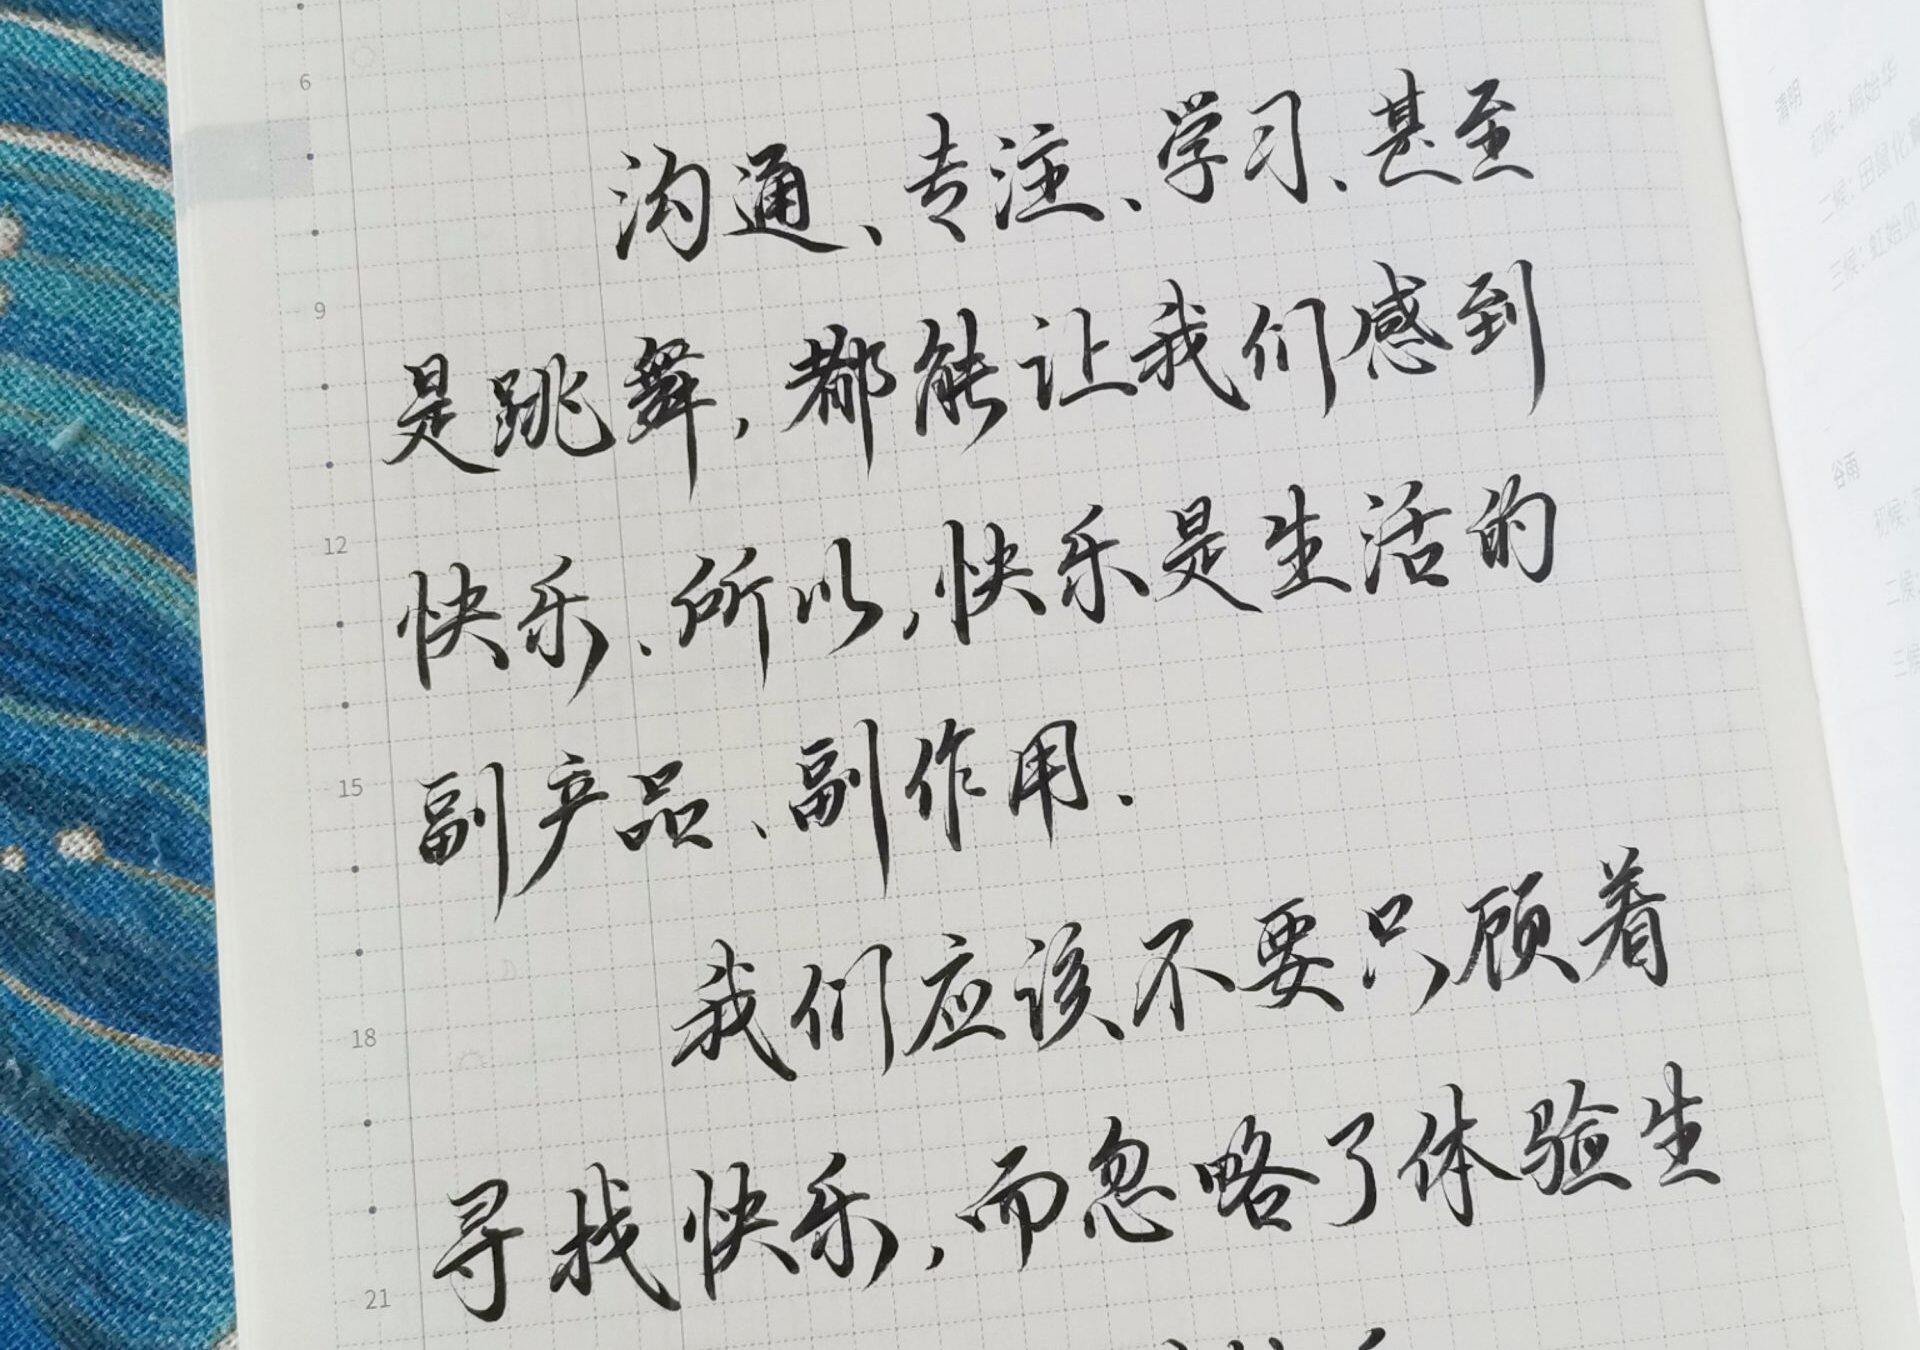 6
沟通、专注、学习、甚至
9
是跳舞，都能让我们感到
12
快乐、所以，快乐是生活的
15
副产品、副作用.
我们应该不要只顾着
18
寻找快乐，而忽略了体验生
21
清明
初候：桐始华
二候：田鼠化
三候：虹始见
谷雨
初候：
二候
三候